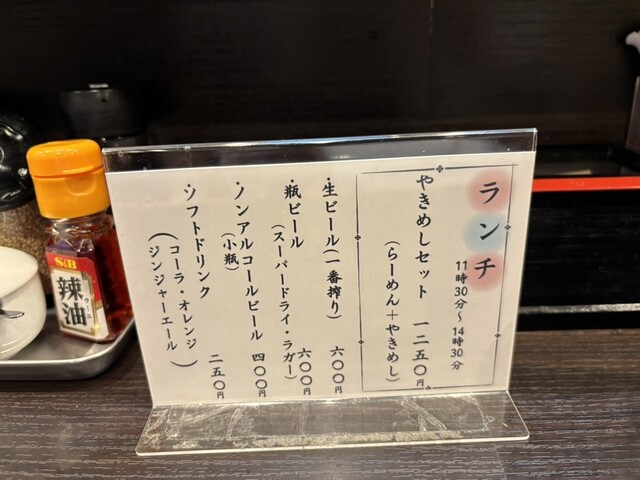 ランチ
11時30分～14時30分
やきめしセット 一二五〇円
(らーめん+やきめし)
・生ビール(一番搾り) 六〇〇円
・瓶ビール 六〇〇円
(スーパードライ・ラガー)
・ノンアルコールビール 四〇〇円
(小瓶)
・ソフトドリンク 二五〇円
(コーラ・オレンジ
ジンジャーエール)
S&B
辣油